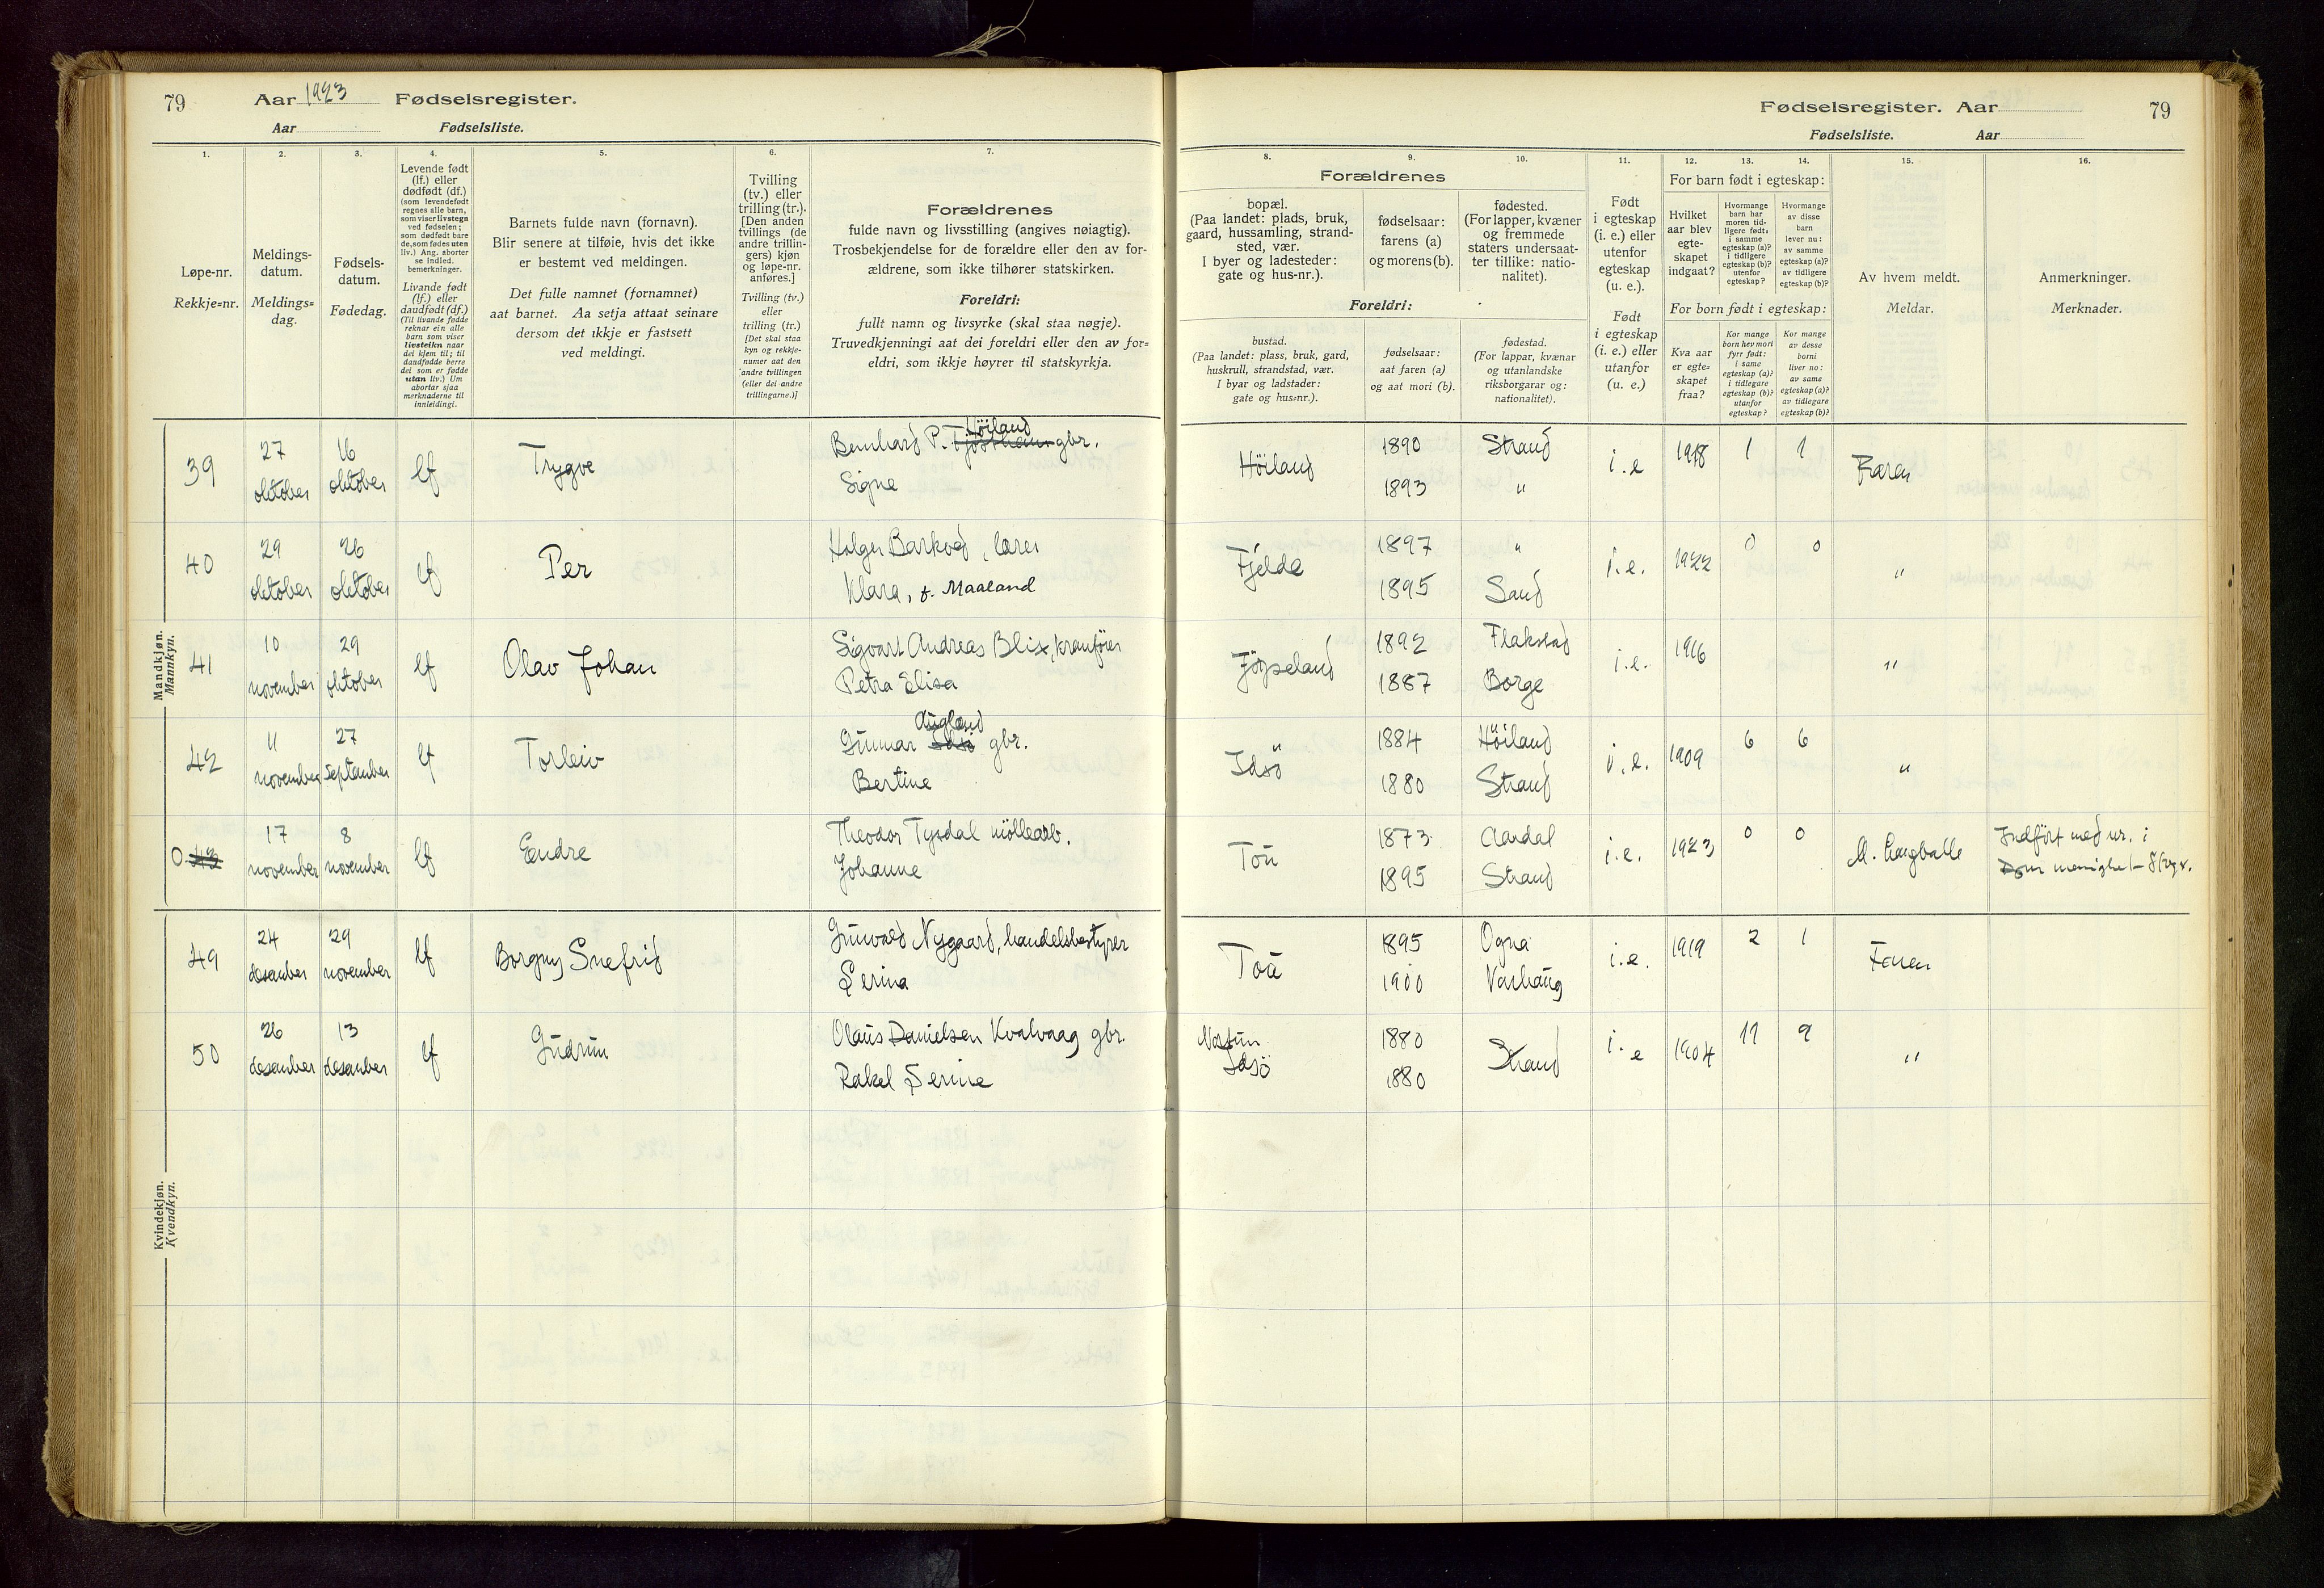 79 Aar 1923 Fødselsregister.
Aar Fødselsliste.
Fødselsregister. Aar 79
Fødselsliste. Aar
1. 2. 3. 4. 5. 6. 7.
Løpe-nr.
Rekkje=nr.
Meldings-
datum.
Meldings=
dag.
Fødsels-
datum.
Fødedag.
Levende født
(lf.) eller
dødfødt (df.)
(som levendefødt
regnes alle barn,
som viser livstegn
ved fødselen;
som dødfødt bare
de, som fødes uten
liv.) Ang. aborter
se indled.
bemerkninger.
Livande født
(lf.) eller
daudfødt (df.)
(Til livande fødde
reknar ein alle
barn som viser
livsteikn naar
dei kjem til; til
daudfødde berre
dei som er fødde
utan liv.) Um
abortar sjaa
merknaderne til
innleidingi.
Barnets fulde navn (fornavn).
Blir senere at tilføie, hvis det ikke
er bestemt ved meldingen.
Det fulle namnet (fornamnet)
aat barnet. Aa setja attaat seinare
dersom det ikkje er fastsett
ved meldingi.
Tvilling
(tv.) eller
trilling (tr.).
[Den anden
tvillings (de
andre trillin-
gers) kjøn
og løpe-nr.
anføres.]
Tvilling (tv.)
eller
trilling (tr.)
[Det skal staa
kyn og rekkje-
numer aat den
andre tvillingen
(eller dei andre
trillingarne.)]
Forældrenes
fulde navn og livsstilling (angives nøiagtig).
Trosbekjendelse for de forældre eller den av for-
ældrene, som ikke tilhører statskirken.
Foreldri:
fullt namn og livsyrke (skal staa nøgje).
Truvedkjenningi aat dei foreldri eller den av for=
eldri, som ikkje høyrer til statskyrkja.
8. 9. 10. 11. 12. 13. 14. 15. 16.
Forældrenes
bopæl.
(Paa landet: plads, bruk,
gaard, hussamling, strand-
sted, vær.
I byer og ladesteder:
gate og hus-nr.).
fødselsaar:
farens (a)
og morens (b).
fødested.
(For lapper, kvæner
og fremmede
staters undersaat-
ter tillike: natio-
nalitet).
Foreldri:
bustad.
(Paa landet: plass, bruk, gard,
huskrull, strandstad, vær.
I byar og ladstader:
gate og hus=nr.).
fødselsaar:
aat faren (a)
og aat mori (b).
fødestad.
(For lappar, kvænar
og utanlandske
riksborgarar og:
nationalitet).
Født
i egteskap
(i. e.) eller
utenfor
egteskap
(u. e.).
Født
i egteskap
(i. e.) eller
utanfor
(u. e.)
For barn født i egteskap:
Hvilket
aar blev
egte-
skapet
indgaat?
Hvormange
barn har
moren tid-
ligere født:
i samme
egteskap (a)?
i tidligere
egteskap (b)?
utenfor
egteskap?
Hvormange
av disse
barn
lever nu:
av samme
egteskap (a)?
av tidligere
egteskap (b)?
For born født i egteskap:
Kva aar
er egte=
skapet
fraa?
Kor mange
born hev mori
fyrr født:
i same
egteskap (a)?
i tidlegare
egteskap (b)?
utanfor
egteskap?
Kor mange
av desse
borni
liver no:
av same
egteskap (a)?
av tidlegare
egteskap (b)?
Av hvem meldt.
Meldar.
Anmerkninger.
Merknader.
Mandkjøn.
Mannkyn.
39 27 oktober 16 oktober lf Trygve Bernhard P. Tjöstheim Höiland gbr.
Signe
Höiland 1890 1893 Strand " i.e 1918 1 1 Faren
40 29 oktober 26 oktober lf Per Holger Barkved, lærer
Klara, f. Maaland
Fjelde 1897 1895 " Sand i.e. 1922 0 0 "
41 10 november 29 oktober lf Olav Johan Sigvart Andreas Blix, kranförer
Petra Elisa
Jörpeland 1892 1887 Flakstad Borge i.e. 1916 "
42 11 november 27 september lf Torleiv Gunnar Idsö Augland gbr.
Bertine
Idsö 1884 1880 Höiland Strand i.e. 1909 6 6 "
0 43 17 november 8 november lf Endre Theodor Tysdal möllearb.
Johanne
Tou 1873 1895 Aardal Strand i.e. 1923 0 0 M. Langballe Indført med nr. i
Dom menighet
Kvindekjøn.
Kvendkyn.
49 24 desember 29 november lf Borgny Snefrid Grunvald Nygaard, handelsbestyrer
Serina
Tou 1895 1900 Ogna Varhaug i.e. 1919 2 1 Faren
50 26 desember 13 desember lf Gudrun Olaus Danielsen Kvalvaag gbr.
Rakel Serine
Nastun
Idsö 1880 1880 Strand i.e 1904 11 9 "